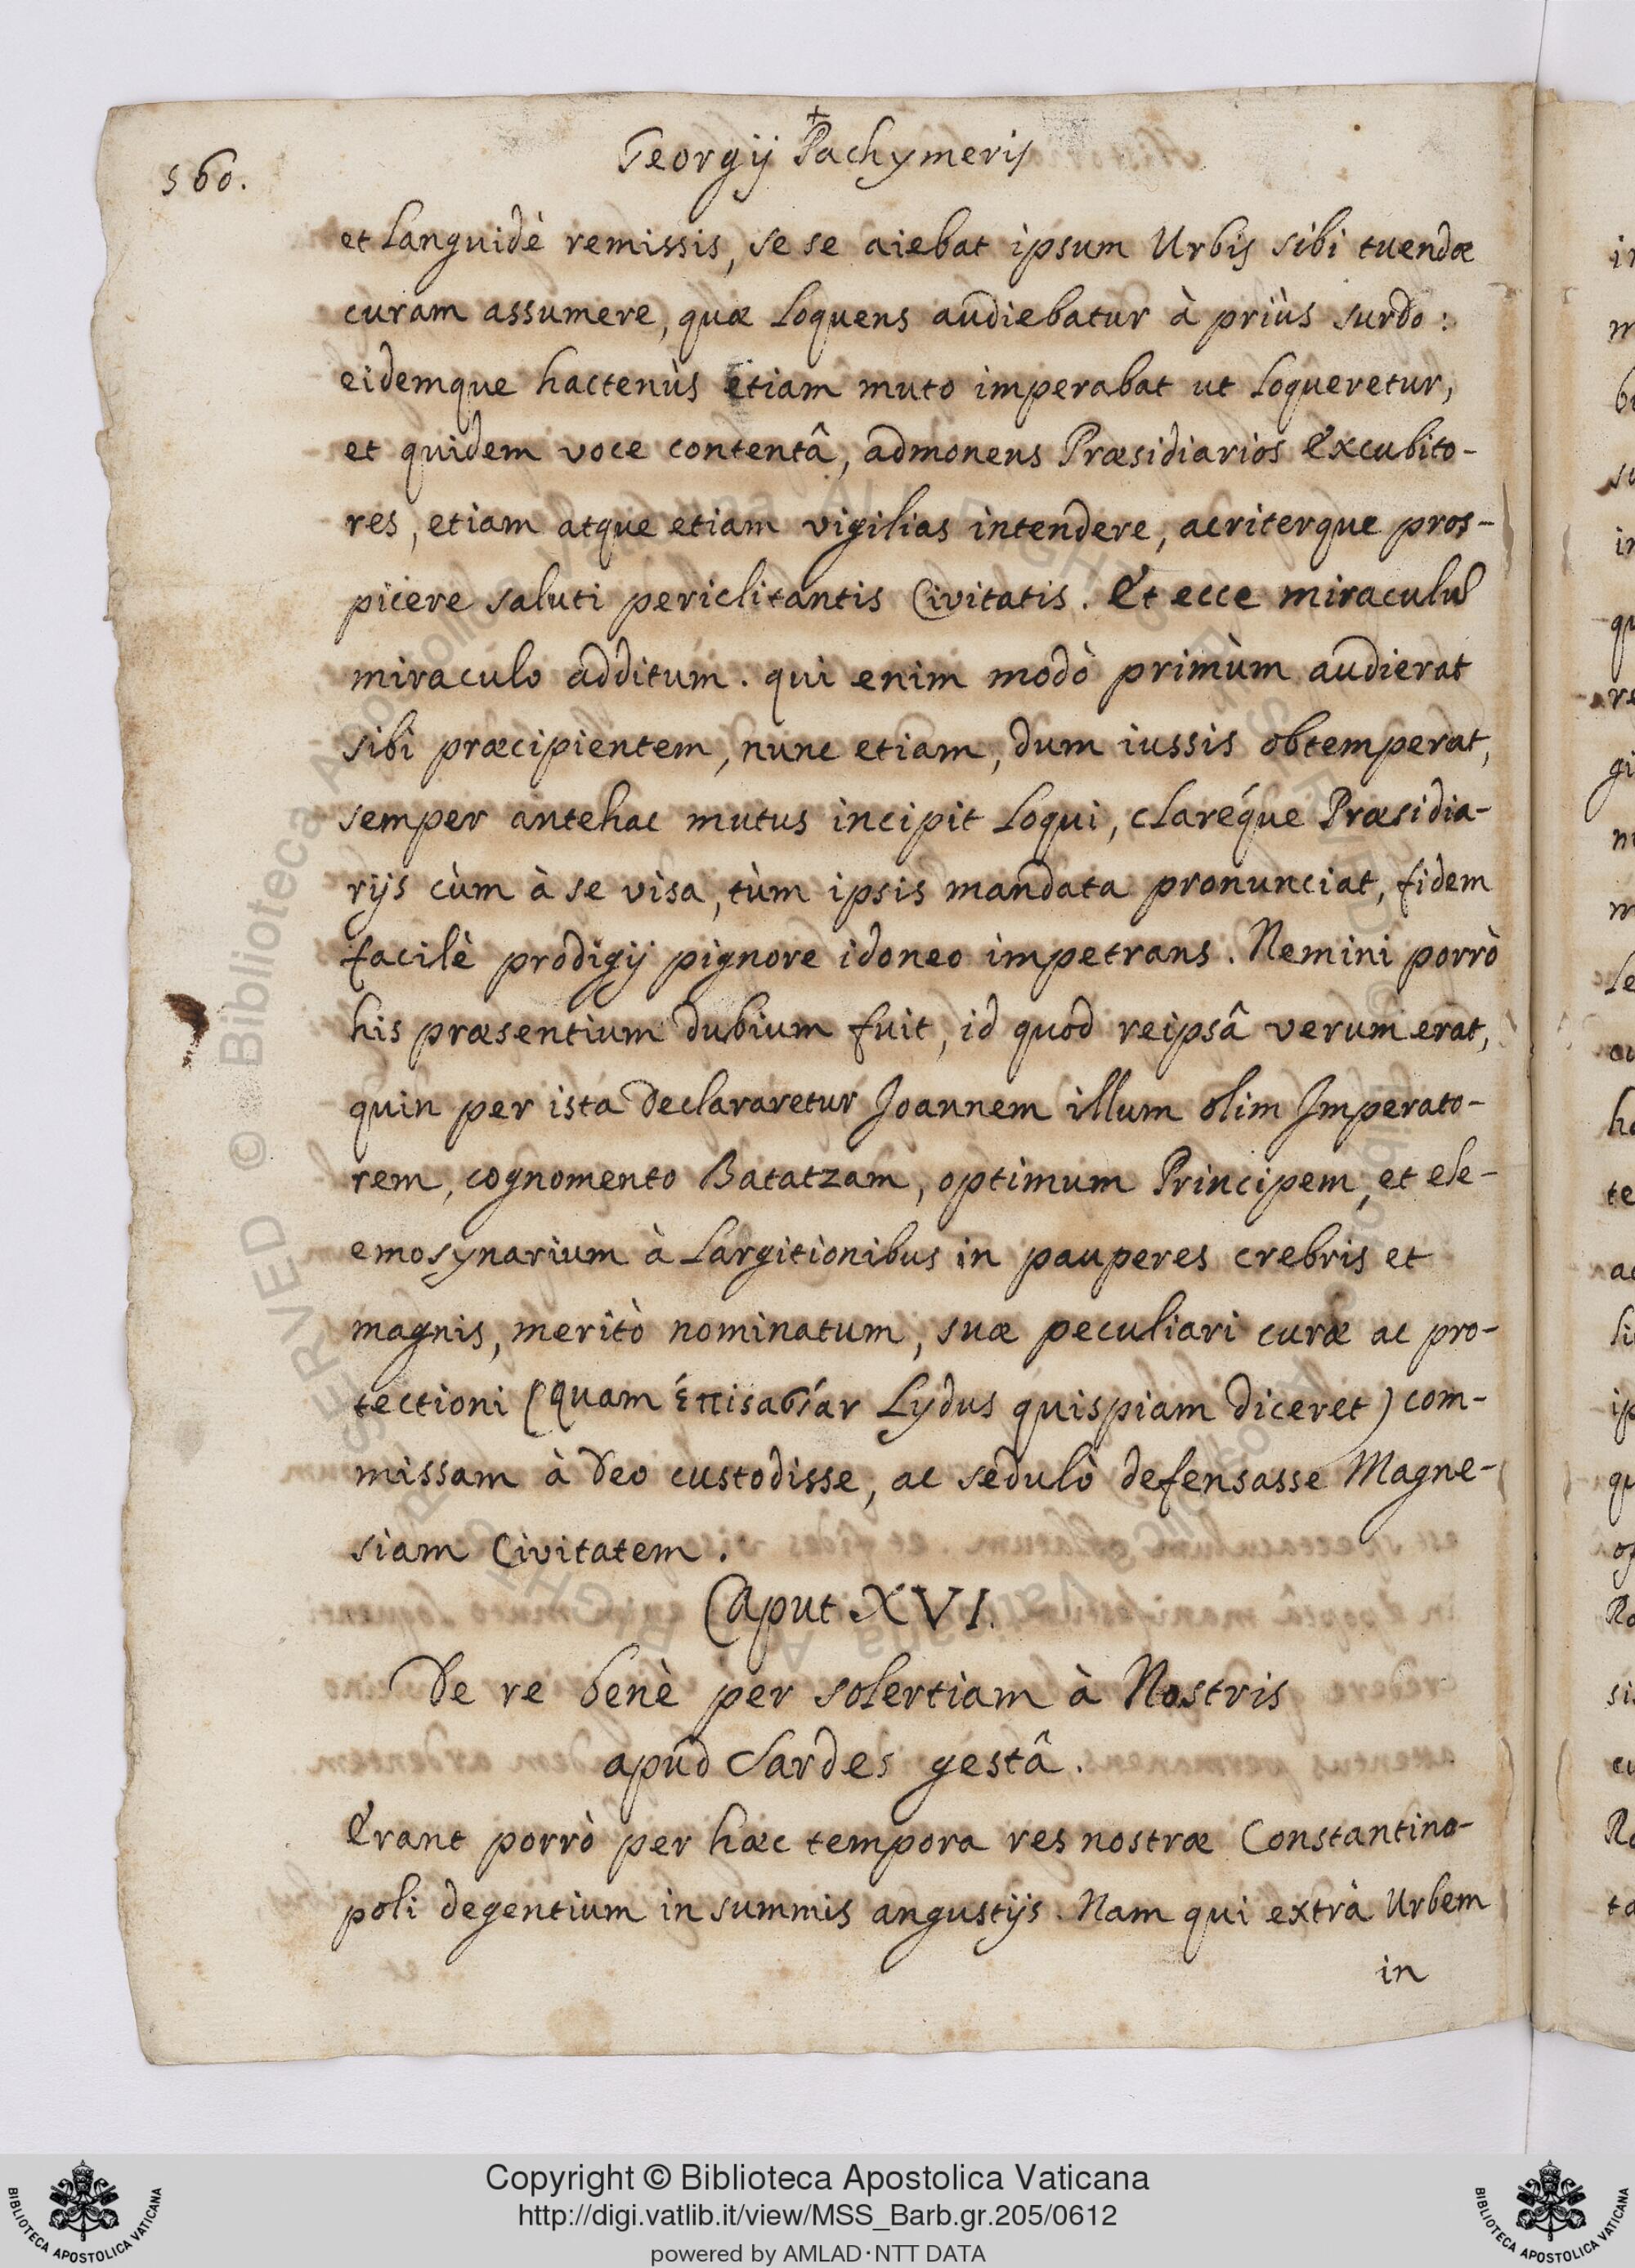 560.
Georgij Pachymeris
et languidè remissis, se se aiebat ipsum Urbis sibi tuendæ
curam assumere, quæ loquens audiebatur à priùs surdo:
eidemque hactenùs etiam muto imperabat ut loqueretur,
et quidem voce contentâ, admonens Præsidiarios Excubito-
res, etiam atque etiam vigilias intendere, acriterque pros-
picere saluti periclitantis Civitatis. Et ecce miraculũ
miraculo additum. qui enim modò primùm audierat
sibi præcipientem, nunc etiam, dum iussis obtemperat,
semper antehac mutus incipit loqui, claréque Præsidia-
rijs cùm à se visa, tùm ipsis mandata pronunciat, fidem
facilè prodigij pignore idoneo impetrans. Nemini porrò
his præsentium dubium fuit, id quod reipsâ verum erat,
quin per ista declararetur Joannem illum olim Imperato-
rem, cognomento Batatzam, optimum Principem, et ele-
emosynarium à largitionibus in pauperes crebris et
magnis, meritò nominatum, suæ peculiari curæ ac pro-
tectioni (quam Lydus quispiam diceret) com-
missam à Deo custodisse, ac sedulò defensasse Magne-
siam Civitatem.
Caput XVI.
De re benè per solertiam à Nostris
apud Sardes gestâ.
Erant porrò per hæc tempora res nostræ Constantino-
poli degentium in summis angustijs. Nam qui extrà Urbem
in
Copyright © Biblioteca Apostolica Vaticana
http://digi.vatlib.it/view/MSS_Barb.gr.205/0612
powered by AMLAD·NTT DATA
BIBLIOTECA APOSTOLICA VATICANA
BIBLIOTECA APOSTOLICA VATICANA